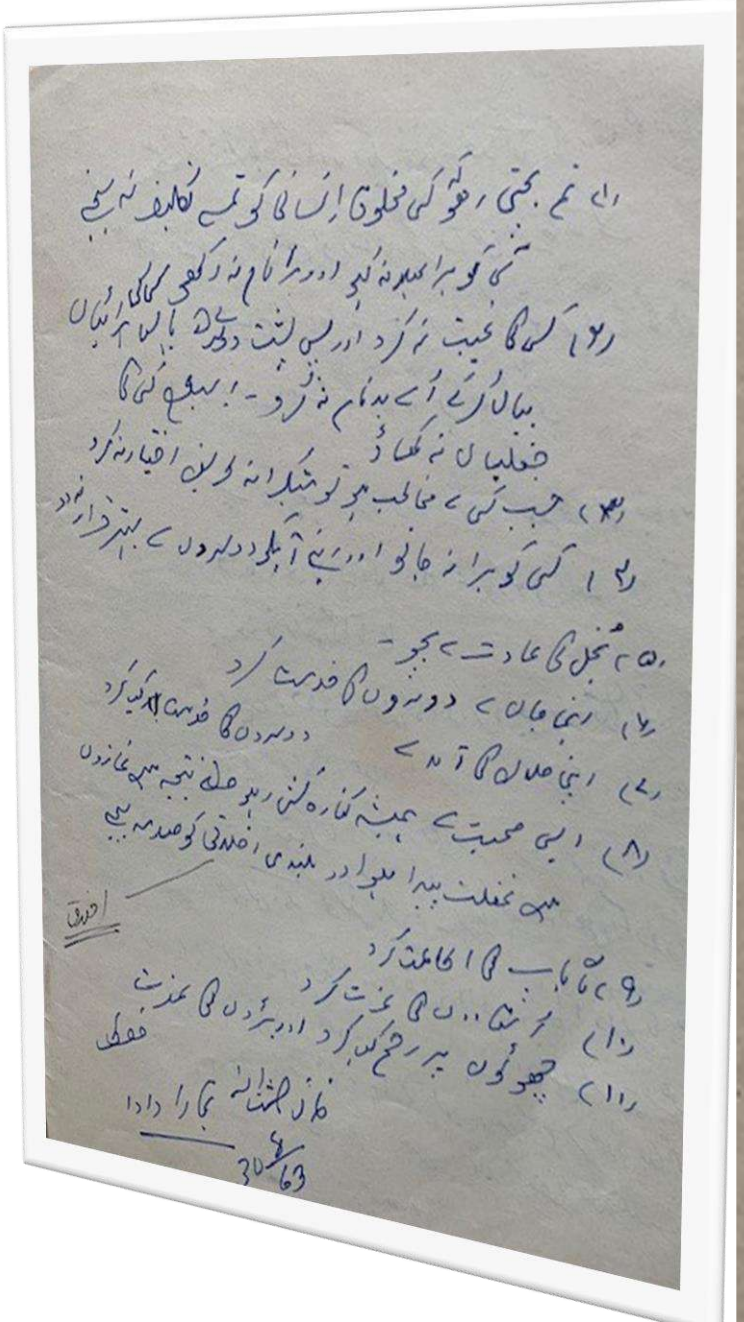 (۱) تم بچتے رہو کہ کسی مخلوق انسانی کو تم سے تکلیف نہ پہنچے
کسی کو برا بھلا نہ کہو اور برا نام نہ رکھو کسی کا
(۲) کسی کا غیبت نہ کرو اور پس پشت برائیاں
بیان کر کے اُسے بدنام نہ کرو - کسی کا
چغلیاں نہ کھاؤ
(۳) جب کسی سے مخاطب ہو تو متکبرانہ طریق اختیار نہ کرو
(۴) کسی کو برا نہ جانو اور اپنے آپکو دوسروں سے بہتر قرار نہ دو
(۵) بُخل کی عادت سے بچو -
(۶) اپنی جان سے دوسروں کا خدمت کرو
(۷) اپنی حلال کی آمد سے دوسروں کا خدمت کرو
(۸) ایسی صحبت سے ہمیشہ کنارہ کش رہو جسکے نتیجہ میں نمازوں
میں غفلت پیدا ہو اور بلندی اخلاقی کو صدمہ پہنچے
اخلاق
(۹) ماں باپ کی اطاعت کرو
(۱۰) اُستادوں کی عزت کرو
(۱۱) چھوٹوں پر رحم کرو اور بڑوں کی عزت
فقط
خان تمہارا دادا
30/4/63